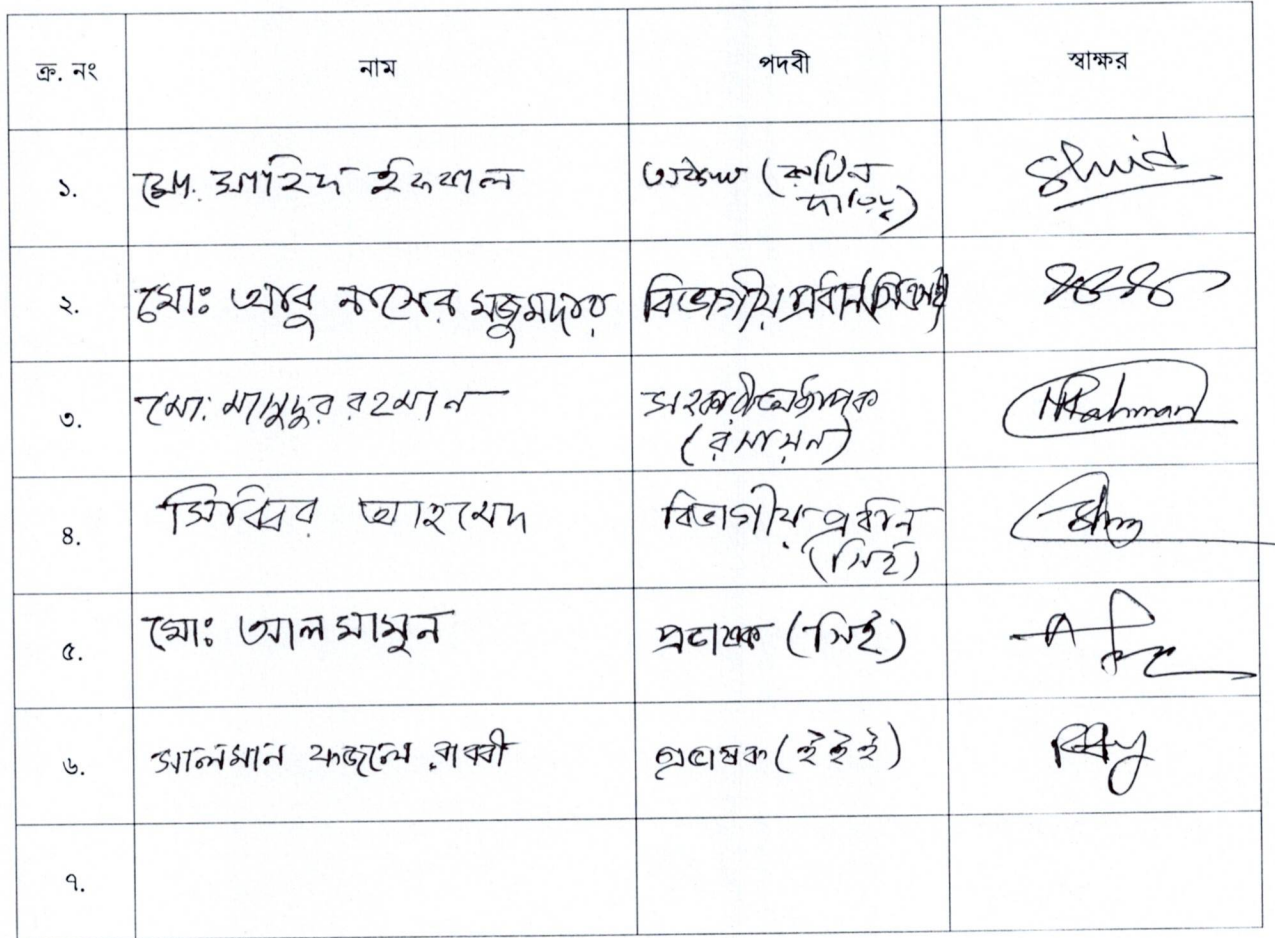 ক্র. নং নাম পদবী স্বাক্ষর
১. মো. শাহিদ ইকবাল অধ্যক্ষ (রুটিন
দায়িত্ব)
২. মোঃ আবু নাসের মজুমদার বিভাগীয় প্রধান (সিএসই)
৩. মো: মাসুদুর রহমান সহকারী অধ্যাপক Rahman
(রসায়ন)
৪. আহমেদ বিভাগীয় প্রধান
(সিই)
৫. মোঃ আল মামুন প্রভাষক (সিই)
৬. সালমান ফজলে রাব্বী প্রভাষক (ইইই)
৭.